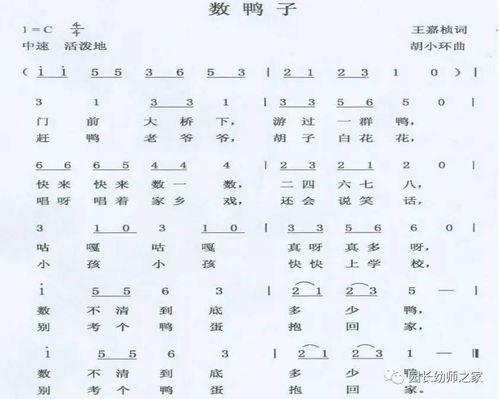 数鸭子
1=C 4/4 王嘉桢词
中速 活泼地 胡小环曲
( i i 5 5 3 6 5 3 | 2 1 2 3 1 0 1 0 )
3 1 3 3 1 | 3 3 5 6 5 0 |
门前大桥下, 游过一群鸭,
赶鸭老爷爷, 胡子白花花,
6 6 6 5 4 4 4 | 2 3 2 1 2 0 |
快来快来数一数, 二四六七八,
唱呀唱着家乡戏, 还会说笑话,
3 1 0 3 1 0 | 3 3 5 6 6 0 |
咕嘎咕嘎 真呀真多呀,
小孩小孩 快快上学校,
i 5 5 6 3 | 2 1 2 3 5 - |
数不清到底多少鸭,
别考个鸭蛋抱回家,
i 5 5 6 3 | 2 1 2 3 1 - |
数不清到底多少鸭,
别考个鸭蛋抱回家。
园长幼师之家